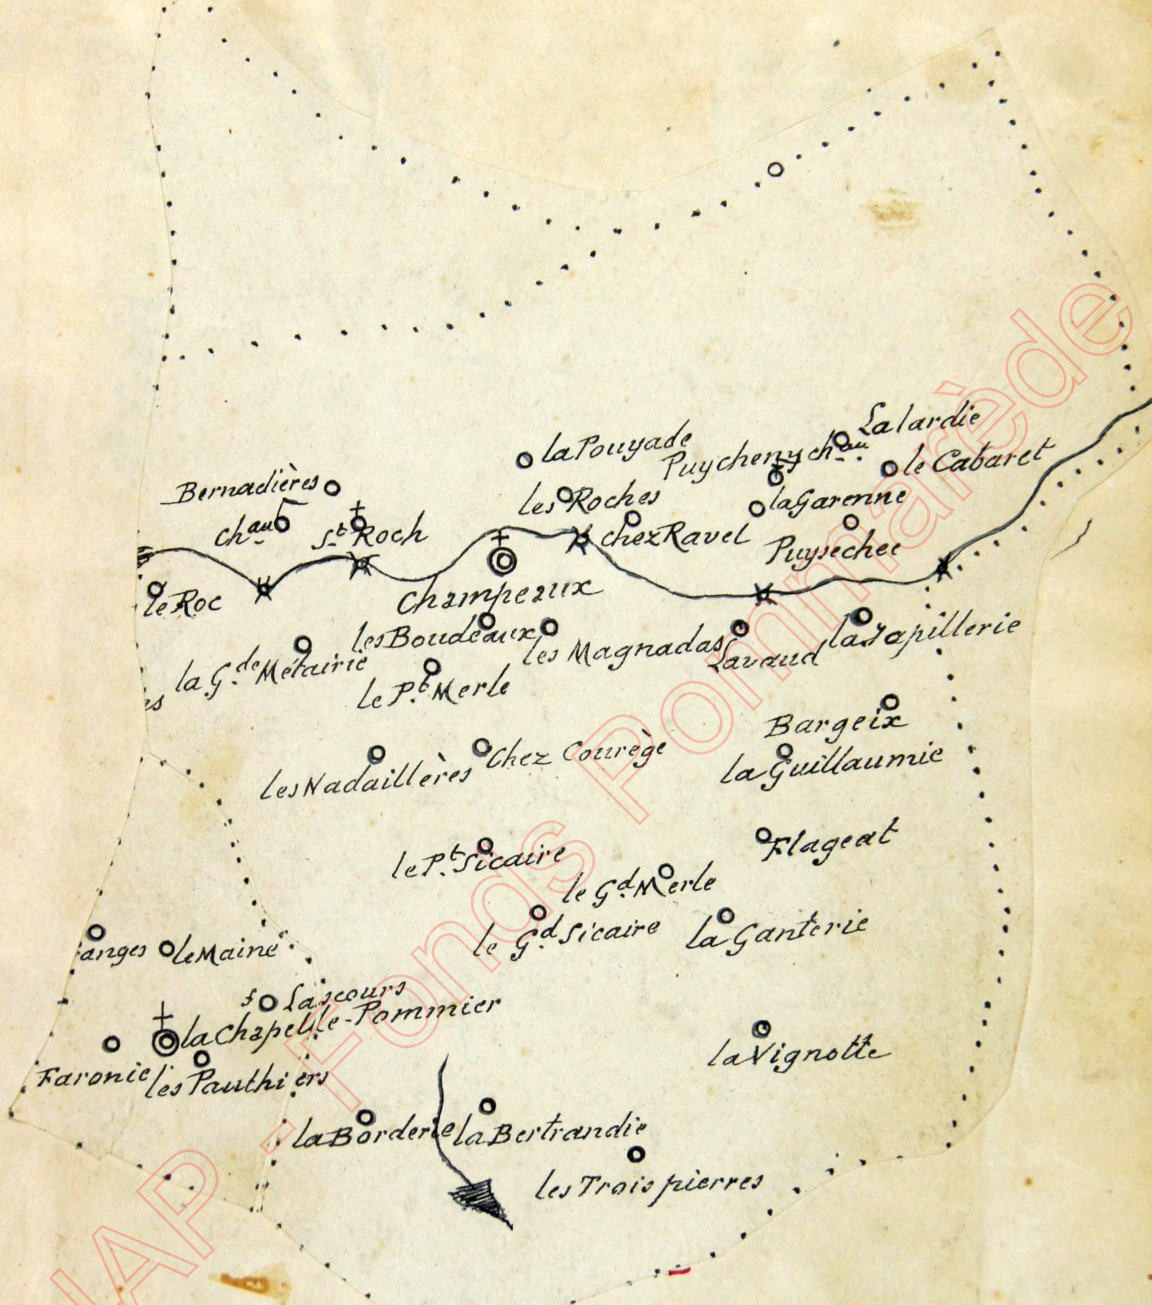 Lalardie
la Pouyade
Puycheny chau.
le Cabaret
Bernadières
les Roches
la Garenne
chau.
St. Roch
chez Ravel
Puysechee
le Roc
Champeaux
les Boudeaux
les Magnadas
Lavaud
la Japillerie
la Gde. Métairie
le Pt. Merle
es
Bargeix
Chez Courège
la Guillaumie
les Nadaillères
Flageat
le Pt. Sicaire
le Gd. Merle
le Gd. Sicaire
la Ganterie
anges
le Maine
Lascours
la Chapelle-Pommier
la Vignotte
Faronie
les Pauthiers
la Borderie
la Bertrandie
les Trois pierres
AP - Fonds Pommarède